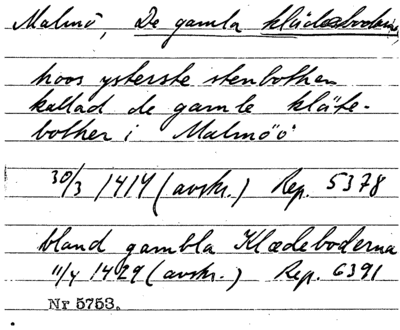 Malmö, De gamla klädesbodarna,
hoos ysterste stenbothen
kallad de gamle kläte-
bother i Malmöö
30/3 1414 (avskr.) Rep. 5378
bland gambla Klædeboderna
11/4 1429 (avskr.) Rep. 6391
Nr 5753.